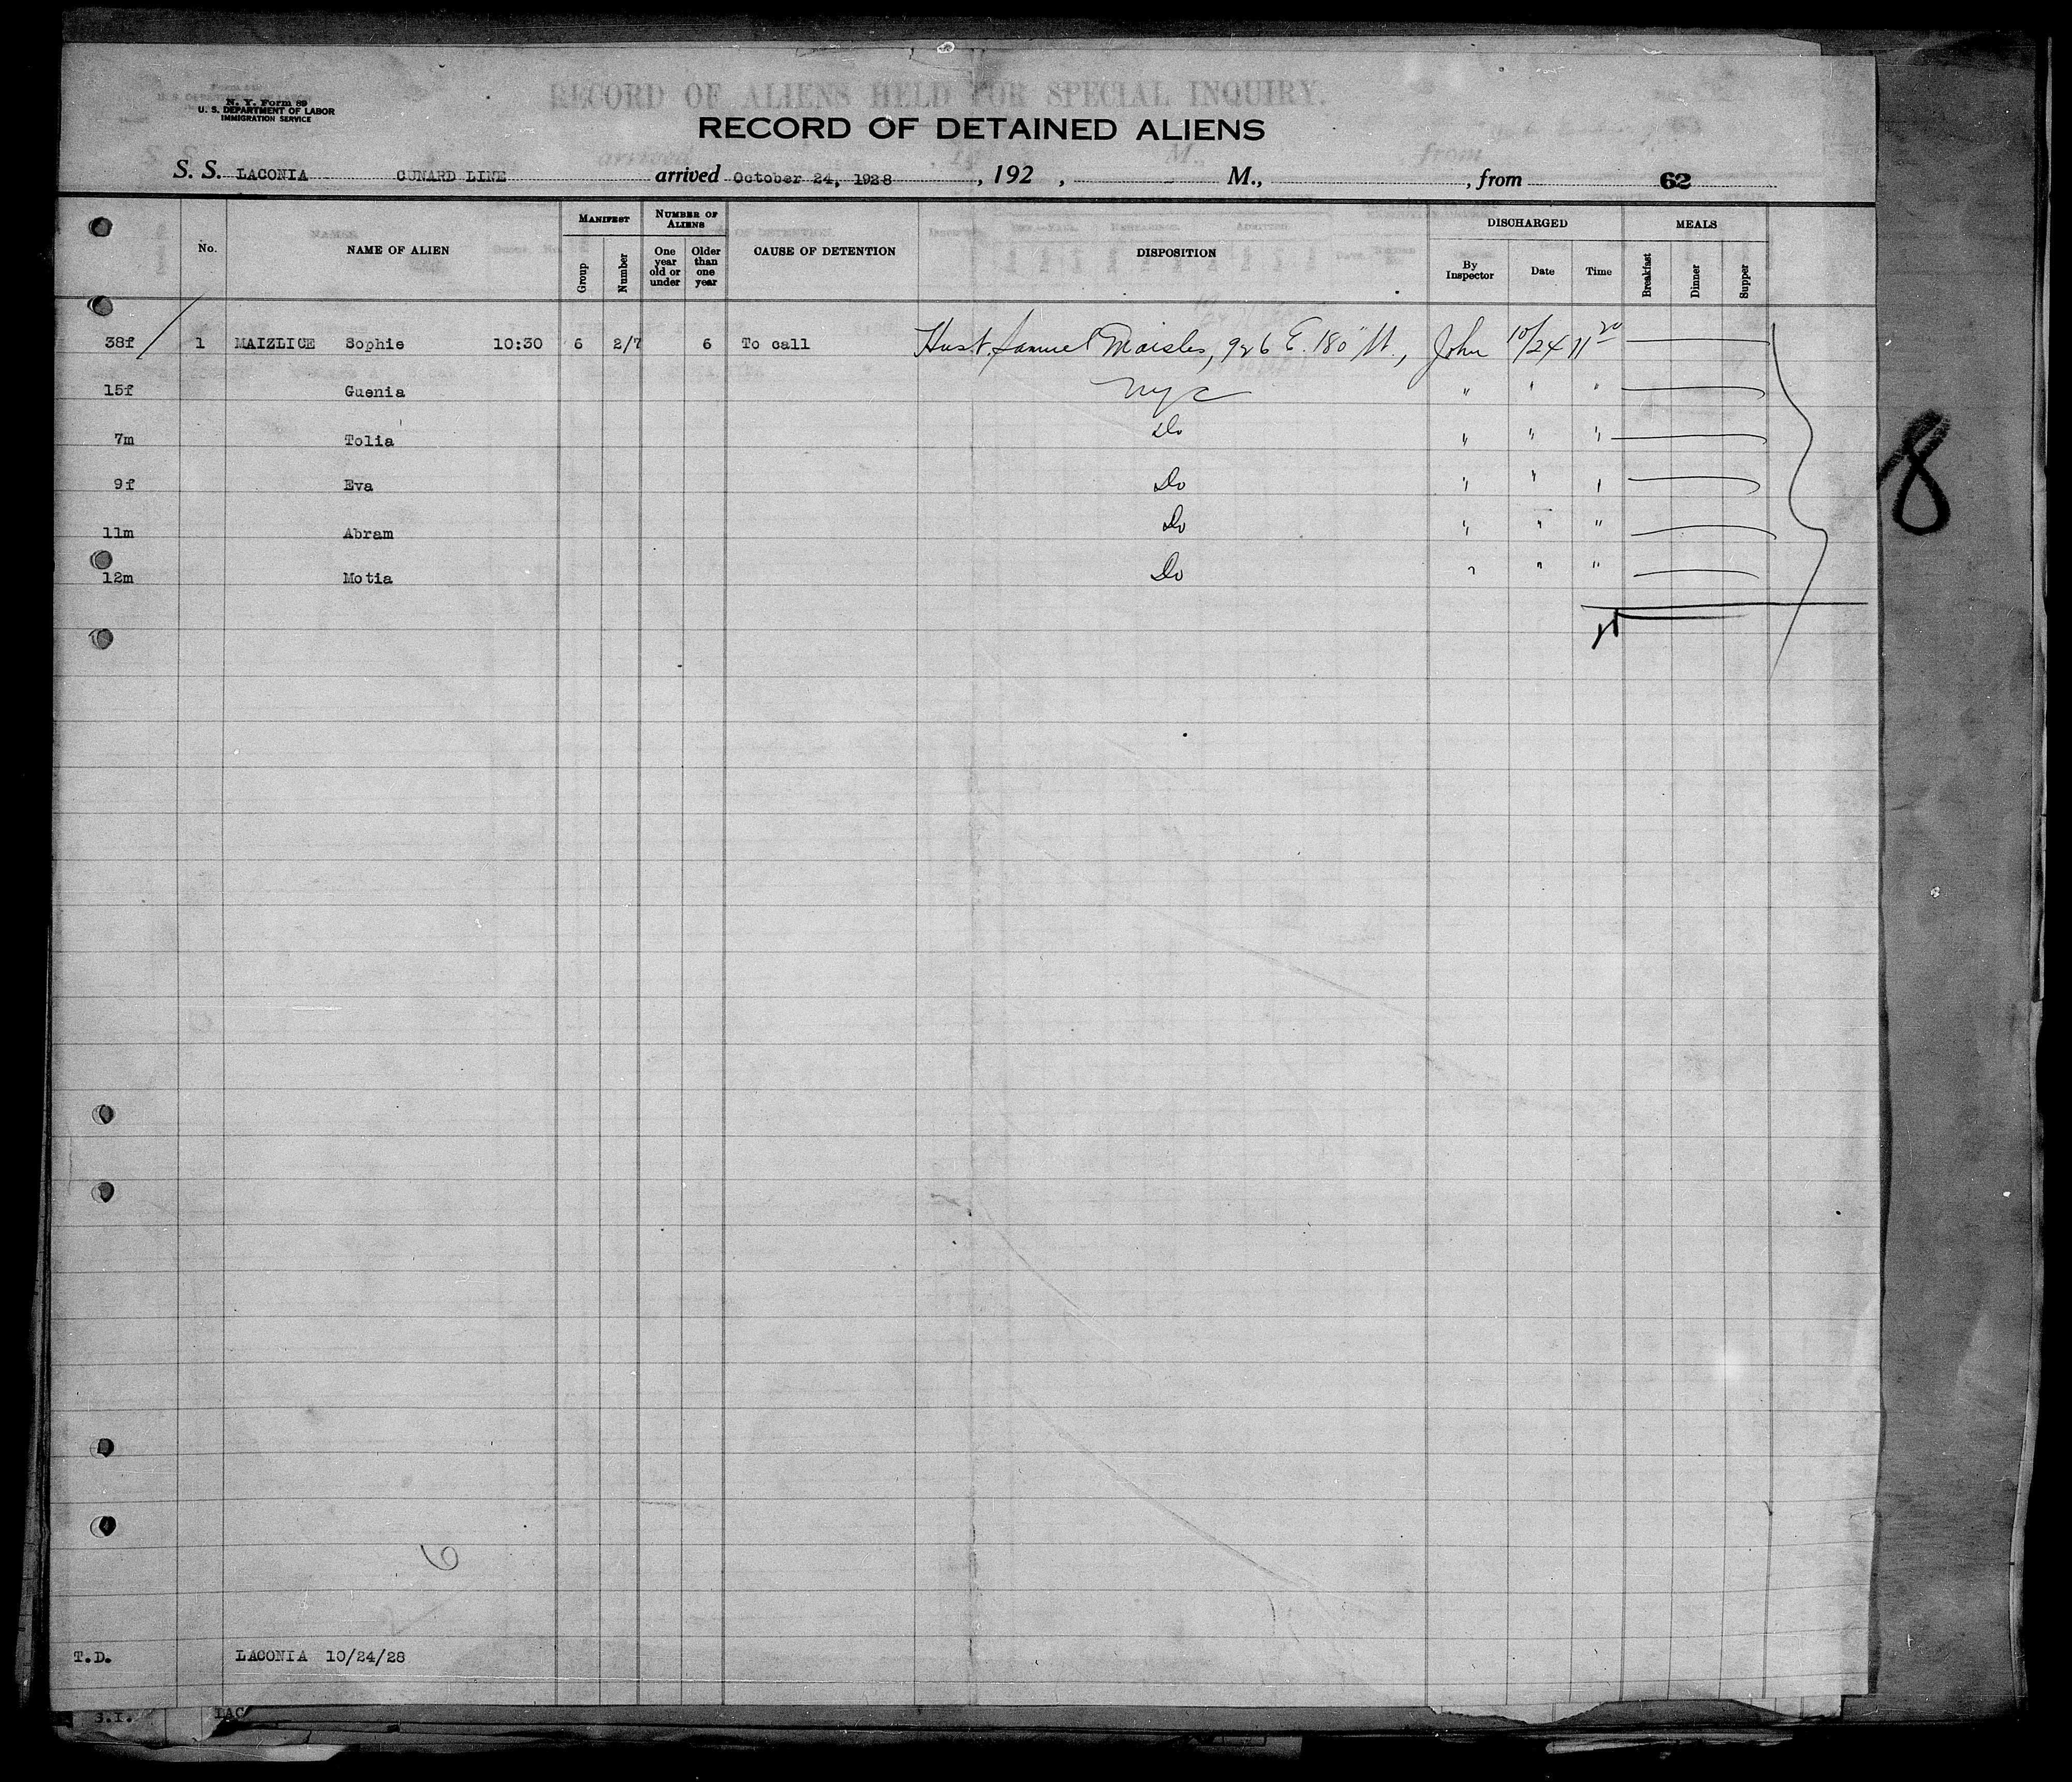 RECORD OF ALIENS HELD FOR SPECIAL INQUIRY.
N. Y. Form 89
U. S. DEPARTMENT OF LABOR
IMMIGRATION SERVICE
RECORD OF DETAINED ALIENS
S. S. LACONIA CUNARD LINE arrived October 24, 1928, 192 , M., , from 62
No. NAME OF ALIEN MANIFEST Group Number NUMBER OF ALIENS One year old or under Older than one year CAUSE OF DETENTION DISPOSITION DISCHARGED By Inspector Date Time MEALS Breakfast Dinner Supper
38f 1 MAIZLICE Sophie 10:30 6 2/7 6 To call Husb. Samuel Maisles, 926 E. 180" St., John 10/24 11 20
15f Guenia NYC " " "
7m Tolia Do " " "
9f Eva Do " " "
11m Abram Do " " "
12m Motia Do " " "
8
6
T.D. LACONIA 10/24/28
S.I. LAC